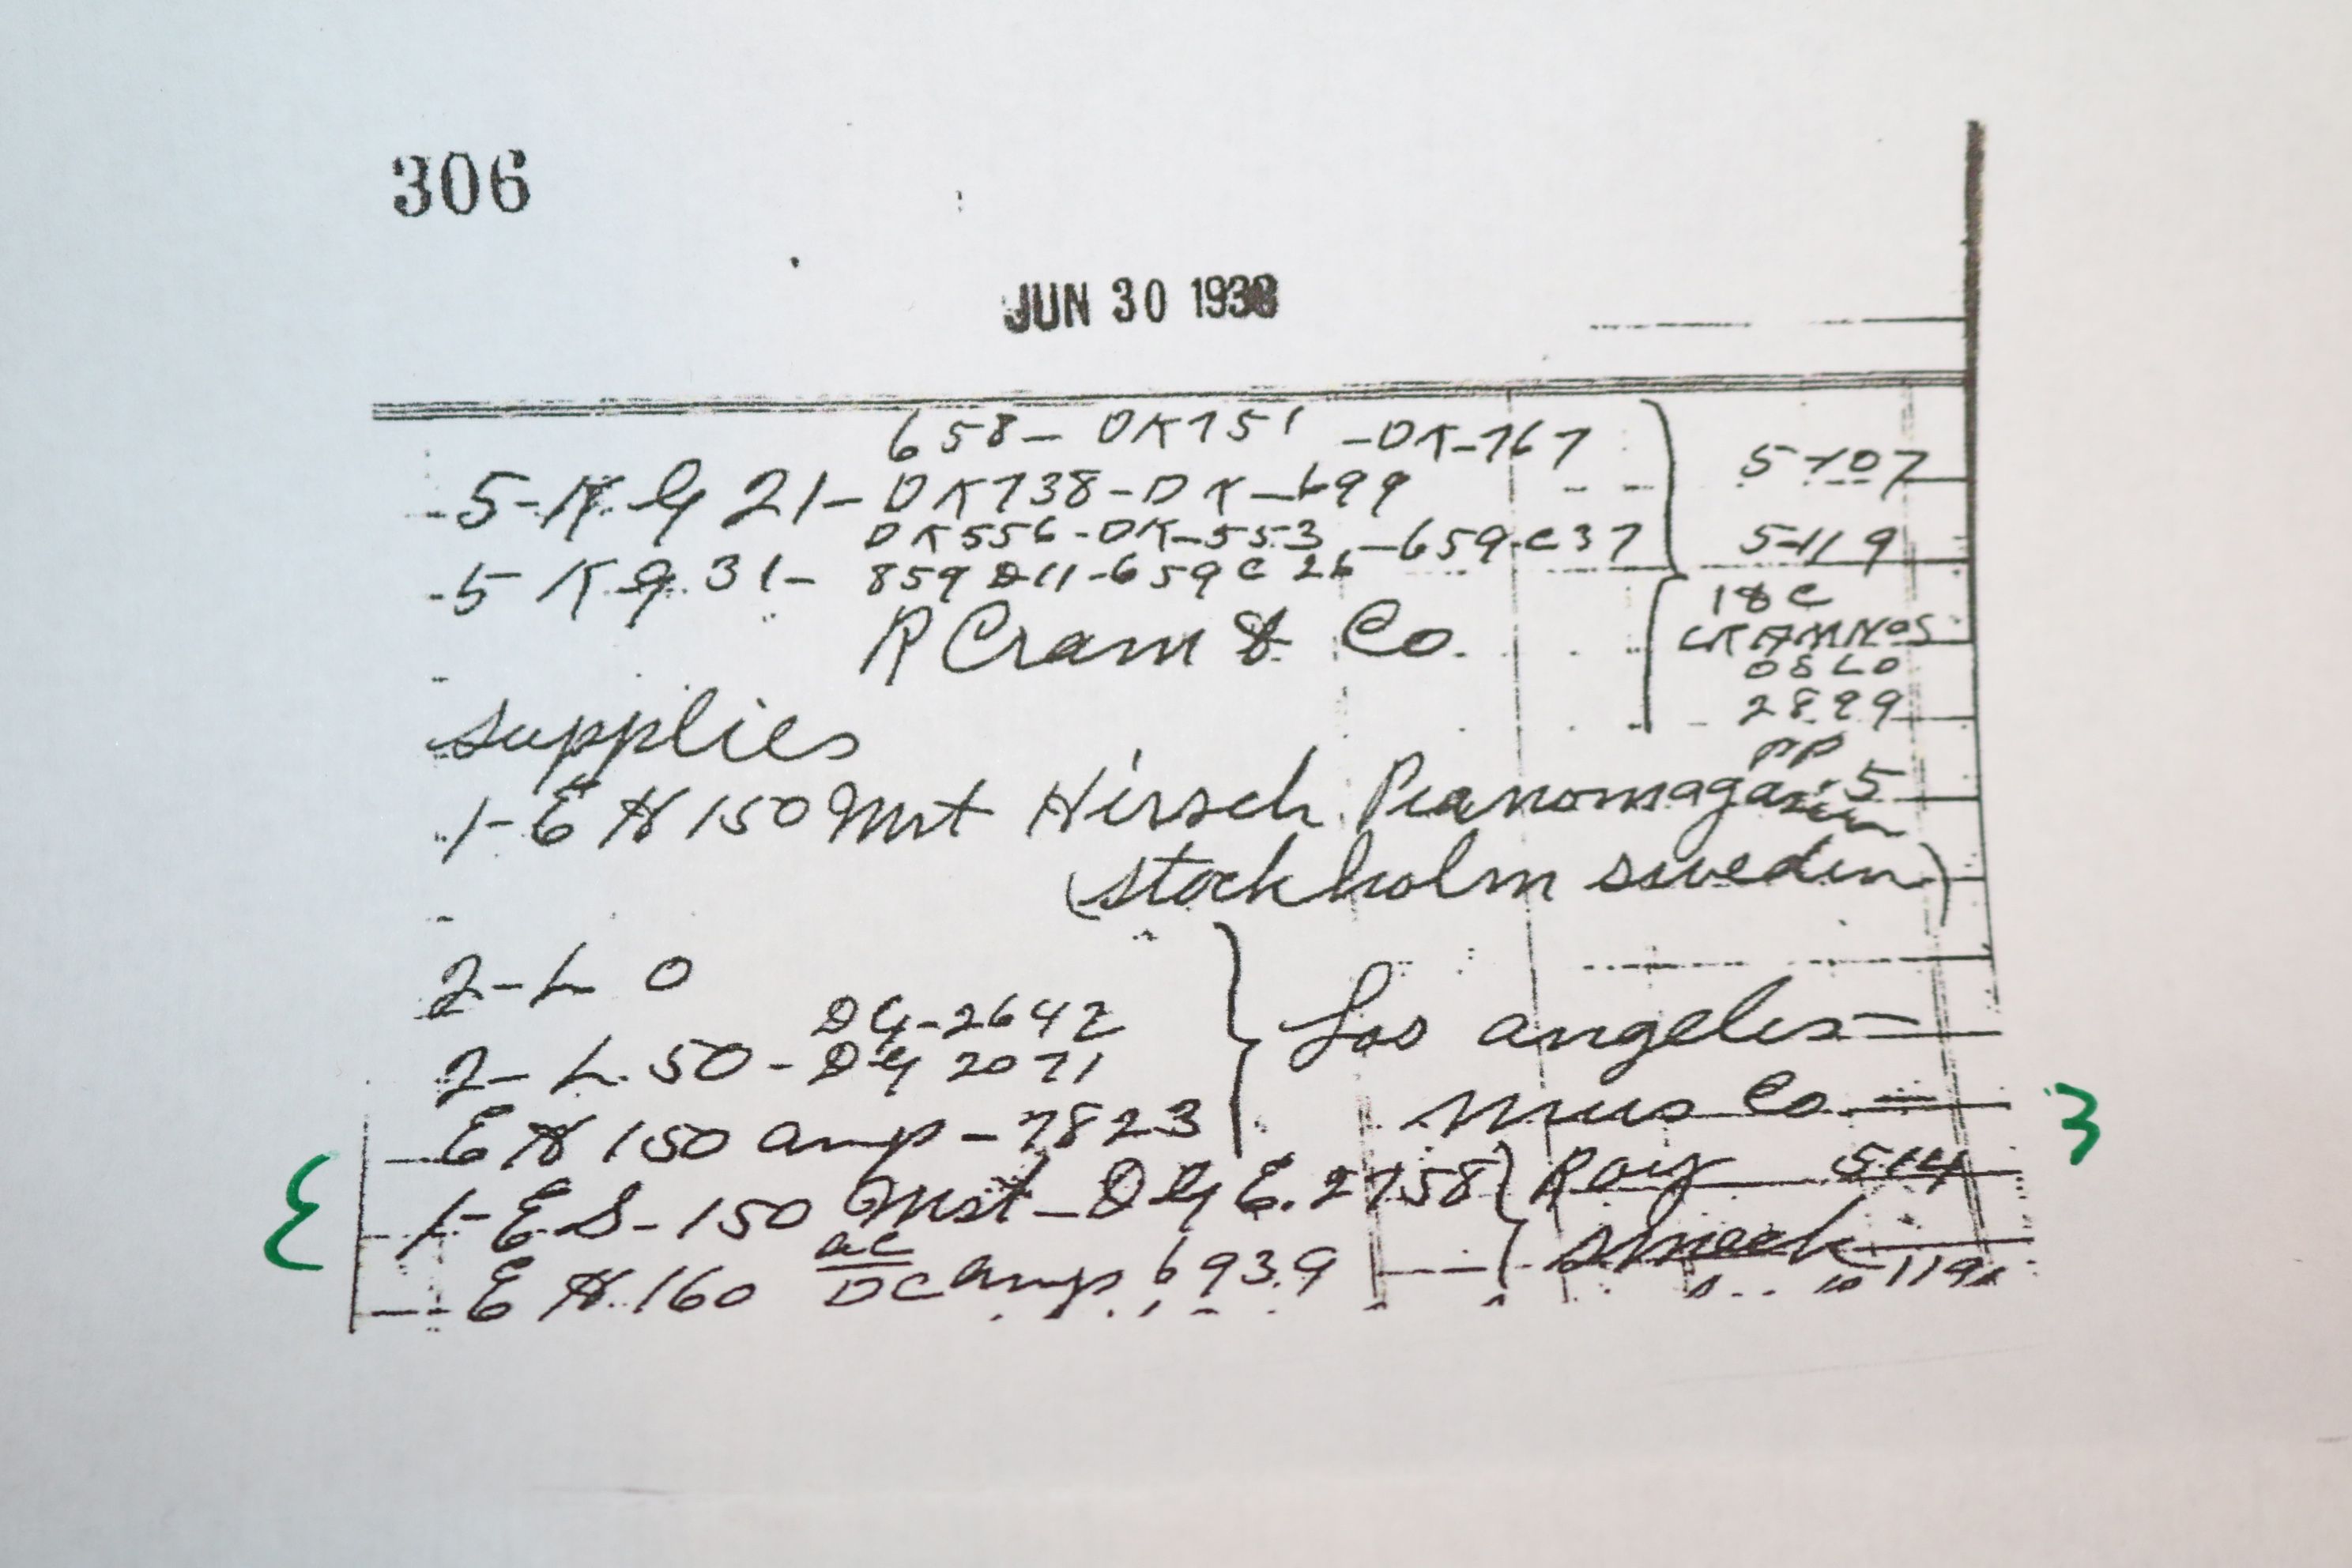 306
JUN 30 1938
658- DK751 -DK-767
5-K.G 21- DK738-DK-699 5-107
DK556-DK-553-659-C37 5-119
5 K.g. 31- 859 D11-659 C 26
18 C
R Cram & Co. CRAMNOS
OSLO
2899
supplies
1-E H 150 Mrt Hirsch Pianomagasin 5
(stockholm sweden)
2-L 0
DG-2642 Los angeles=
2- L. 50 - DG 2071
E H 150 amp - 7823 mus Co =
1-E.S-150 Mst-DG E. 2758 Roy 514
E H.160 ac/DC amp 6939 smeck
119